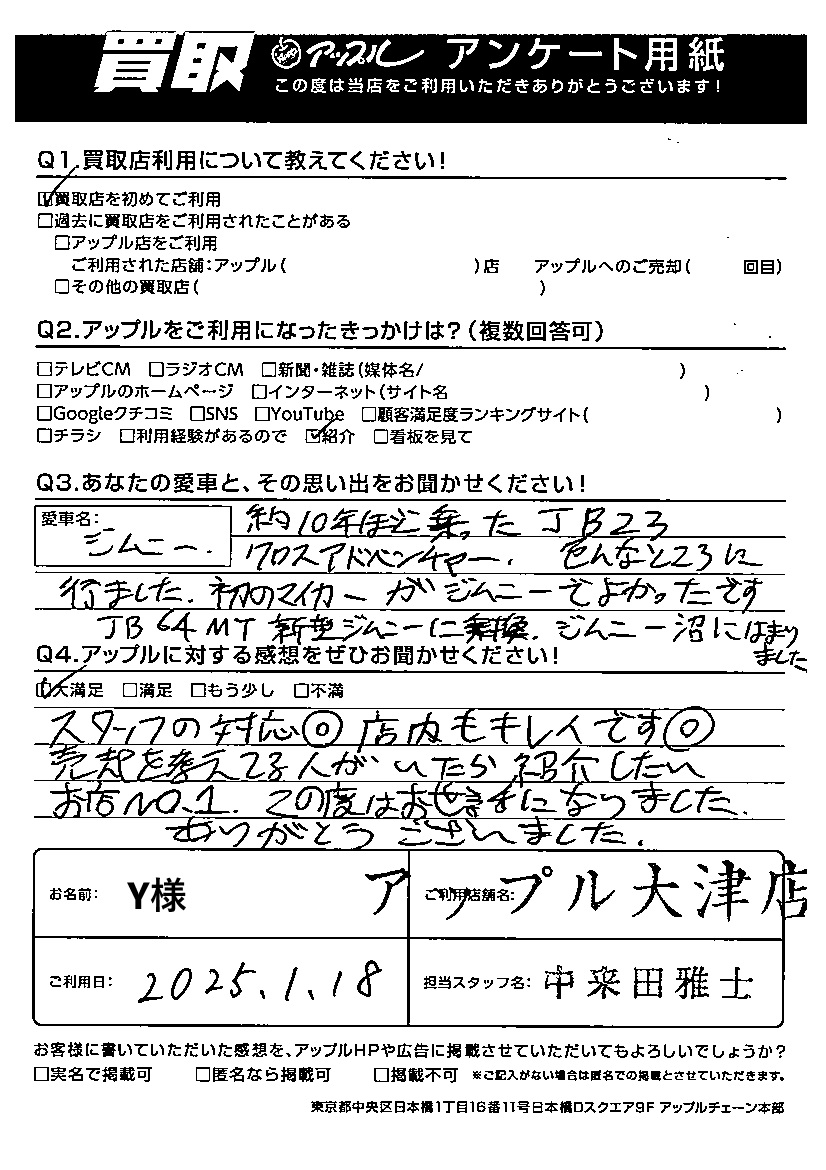 買取 アップル アンケート用紙
この度は当店をご利用いただきありがとうございます!
Q1.買取店利用について教えてください!
☑買取店を初めてご利用
□過去に買取店をご利用されたことがある
□アップル店をご利用
ご利用された店舗:アップル( )店 アップルへのご売却( 回目)
□その他の買取店( )
Q2.アップルをご利用になったきっかけは?(複数回答可)
□テレビCM □ラジオCM □新聞・雑誌(媒体名/ )
□アップルのホームページ □インターネット(サイト名 )
□Googleクチコミ □SNS □YouTube □顧客満足度ランキングサイト( )
□チラシ □利用経験があるので ☑紹介 □看板を見て
Q3.あなたの愛車と、その思い出をお聞かせください!
愛車名: ジムニー.
約10年ほど乗った JB23
クロスアドベンチャー. 色んなところに
行ました. 初のマイカーがジムニーでよかったです
JB64MT 新型ジムニーに乗換. ジムニー沼にはまり
ました
Q4.アップルに対する感想をぜひお聞かせください!
☑大満足 □満足 □もう少し □不満
スタッフの対応◎ 店内もキレイです◎
売却を考えてる人がいたら紹介したい
お店NO.1. この度はお世話になりました.
ありがとうございました.
お名前: Y様 ご利用店舗名: アップル大津店
ご利用日: 2025.1.18 担当スタッフ名: 中来田雅士
お客様に書いていただいた感想を、アップルHPや広告に掲載させていただいてもよろしいでしょうか?
□実名で掲載可 □匿名なら掲載可 □掲載不可 ※ご記入がない場合は匿名での掲載とさせていただきます。
東京都中央区日本橋1丁目16番11号日本橋Dスクエア9F アップルチェーン本部